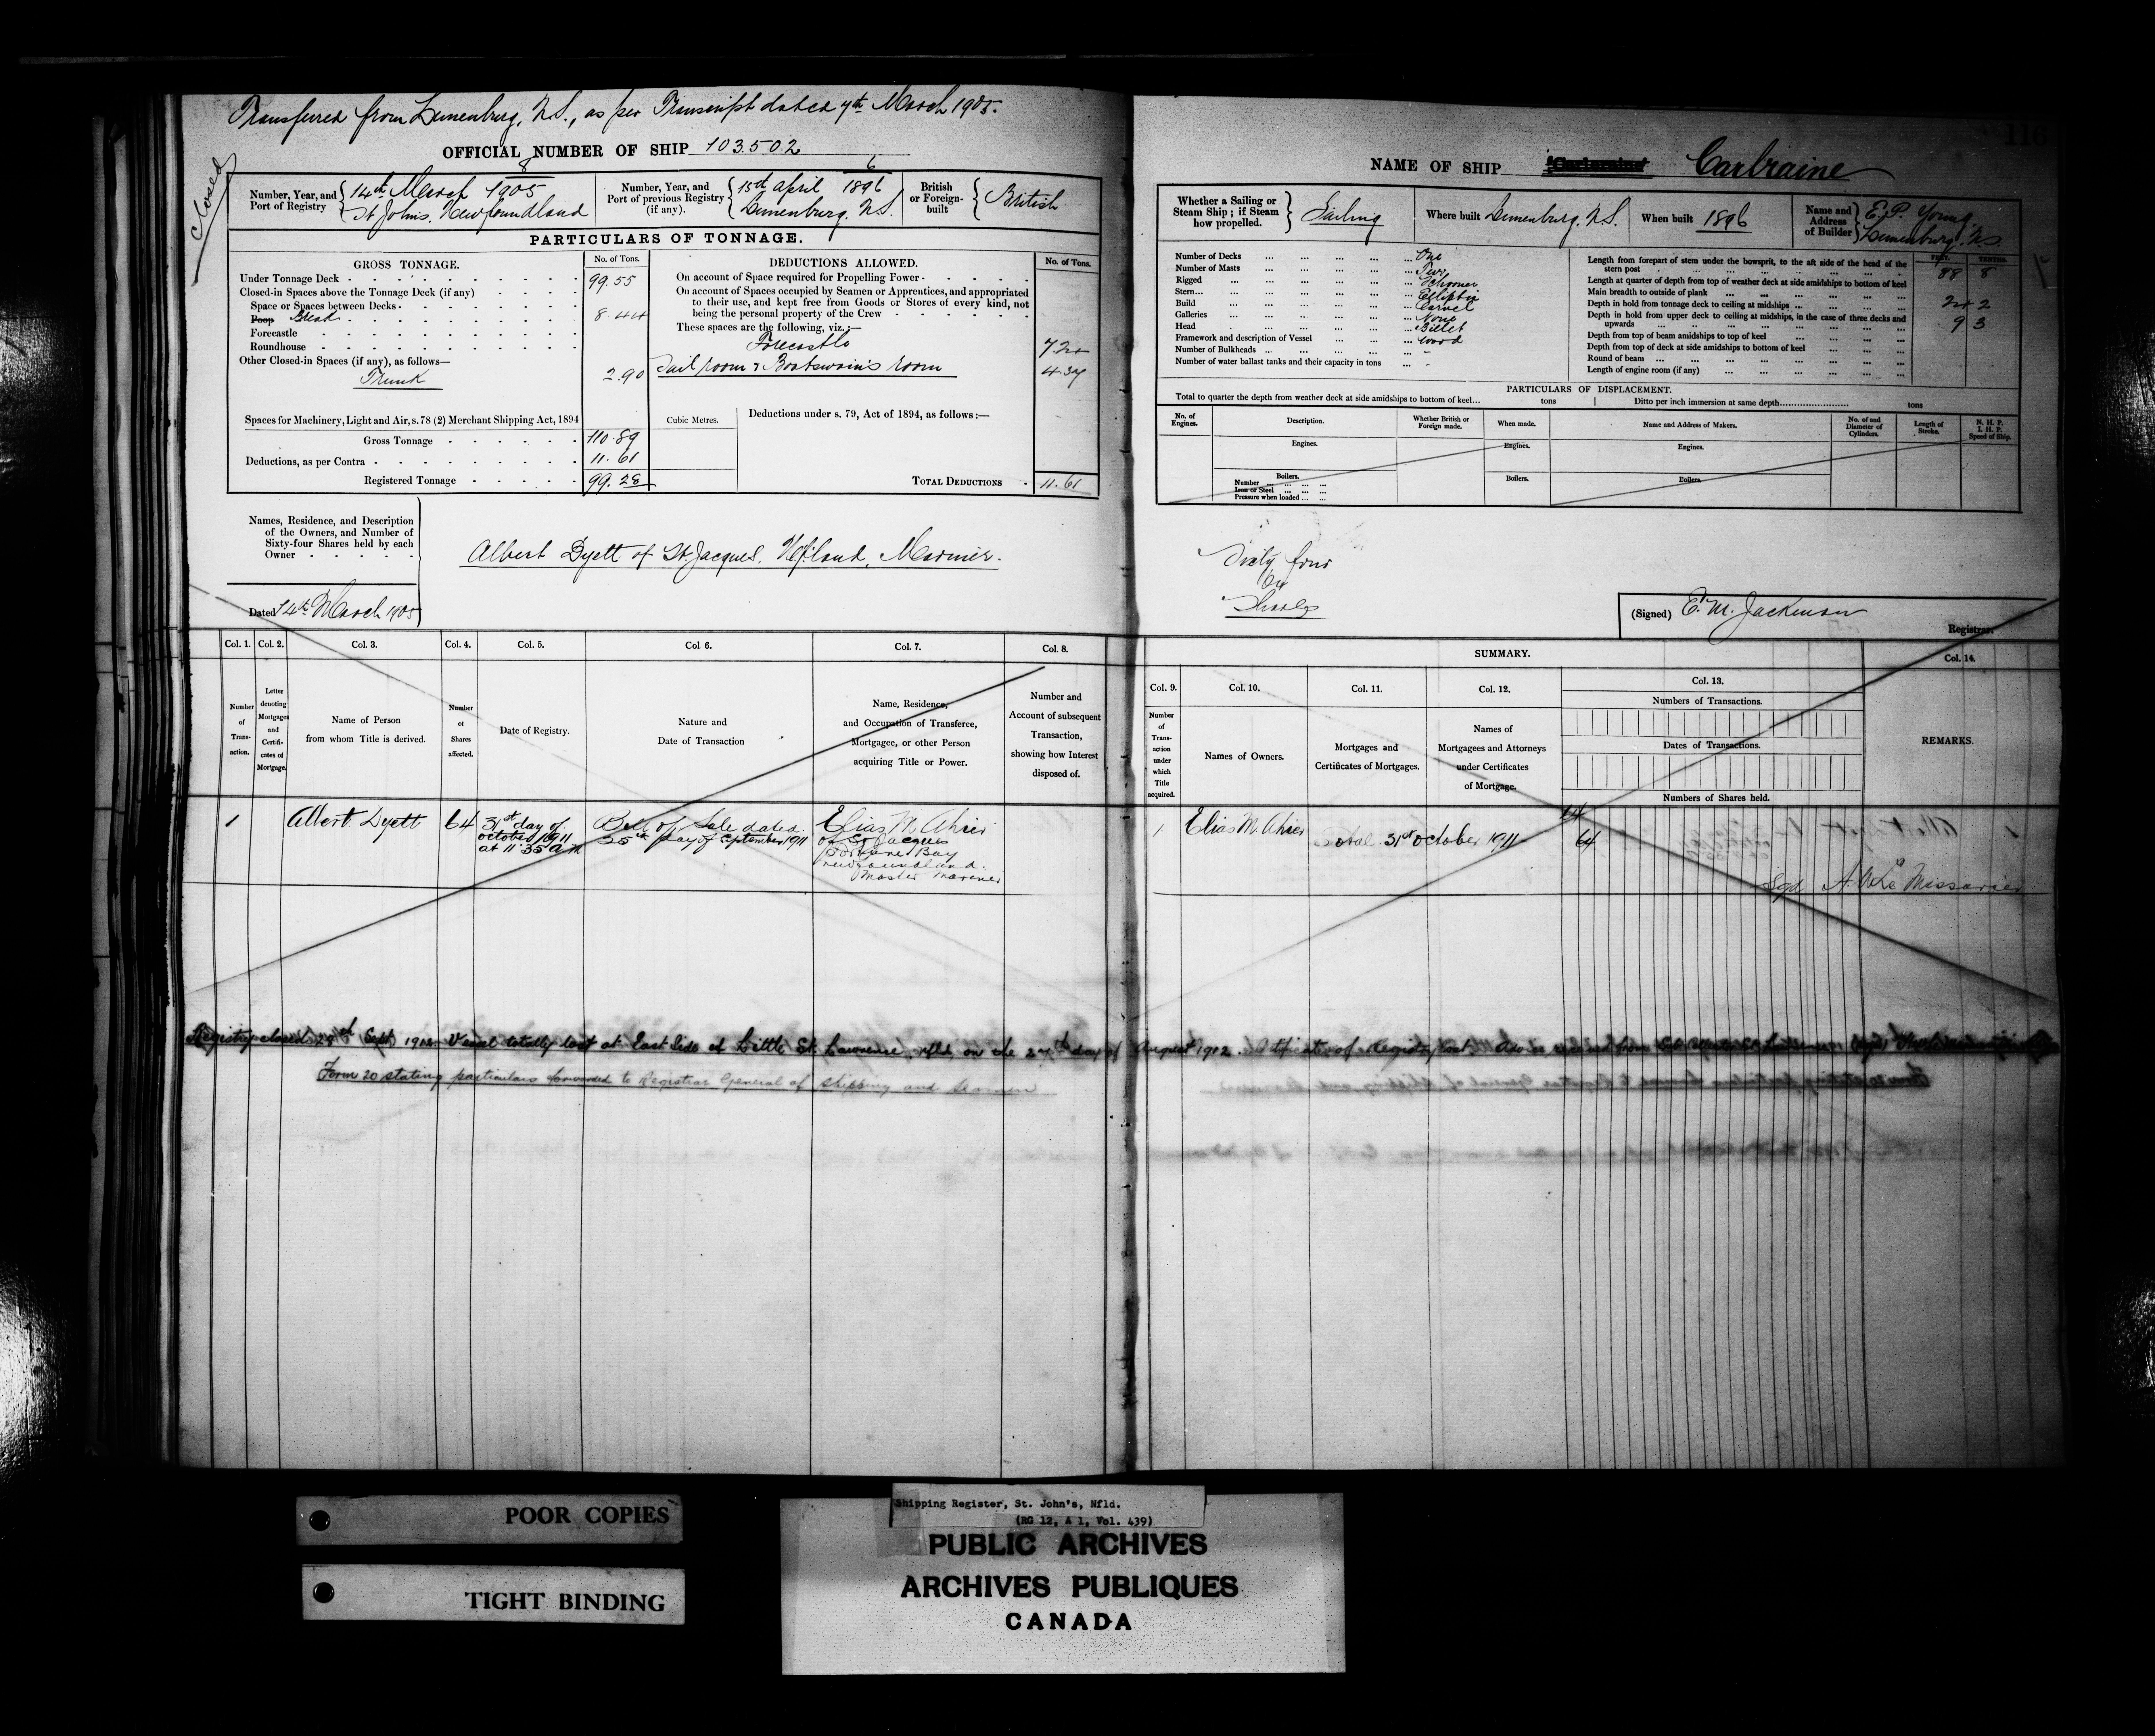 Transferred from Lunenburg, N.S., as per Transcript dated 7th March 1905.
OFFICIAL NUMBER OF SHIP 103.502
Closed
Number, Year, and Port of Registry 8 14th March 1905 St Johns, Newfoundland
Number, Year, and Port of previous Registry (if any). 6 15th April 1896 Lunenburg, N.S.
British or Foreign-built British
PARTICULARS OF TONNAGE.
GROSS TONNAGE. No. of Tons.
Under Tonnage Deck 99.55
Closed-in Spaces above the Tonnage Deck (if any)
Space or Spaces between Decks
Poop Break 8.44
Forecastle
Roundhouse
Other Closed-in Spaces (if any), as follows—
Trunk 2.90
Spaces for Machinery, Light and Air, s.78 (2) Merchant Shipping Act, 1894
Gross Tonnage 110.89
Deductions, as per Contra 11.61
Registered Tonnage 99.28
DEDUCTIONS ALLOWED. No. of Tons.
On account of Space required for Propelling Power
On account of Spaces occupied by Seamen or Apprentices, and appropriated
to their use, and kept free from Goods or Stores of every kind, not
being the personal property of the Crew
These spaces are the following, viz.:—
Forecastle 7.24
Sail room & Boatswain's room 4.37
Cubic Metres.
Deductions under s. 79, Act of 1894, as follows:—
TOTAL DEDUCTIONS 11.61
Names, Residence, and Description
of the Owners, and Number of
Sixty-four Shares held by each
Owner
Albert Dyett of St Jacques, Nfland, Mariner.
Dated 14th March 1905
Col. 1. Col. 2. Col. 3. Col. 4. Col. 5. Col. 6. Col. 7. Col. 8.
Number of Transaction.
Letter denoting Mortgages and Certificates of Mortgage.
Name of Person from whom Title is derived.
Number of Shares affected.
Date of Registry.
Nature and Date of Transaction
Name, Residence, and Occupation of Transferee, Mortgagee, or other Person acquiring Title or Power.
Number and Account of subsequent Transaction, showing how Interest disposed of.
1 Albert Dyett 64 31st day of October 1911 at 11.35 a m
Bill of Sale dated 25th day of September 1911
Elias M. Ahier
of St Jacques
Fortune Bay
Newfoundland.
Master Mariner
Registry closed Sept 1912. Vessel totally lost at East Side of Little St. Lawrence, Nfld, on the 27th day of August 1912. Certificate of Registry lost.
Form 20 stating particulars forwarded to Registrar General of Shipping and Seamen
116
NAME OF SHIP Carbraine
Whether a Sailing or Steam Ship; if Steam how propelled. Sailing
Where built Lunenburg, N.S.
When built 1896
Name and Address of Builder E. P. Young, Lunenburg, N.S.
Number of Decks One
Number of Masts Two
Rigged Schooner
Stern Elliptic
Build Carvel
Galleries None
Head Billet
Framework and description of Vessel Wood
Number of Bulkheads -
Number of water ballast tanks and their capacity in tons -
FEET. TENTHS.
Length from forepart of stem under the bowsprit, to the aft side of the head of the
stern post 88 8
Length at quarter of depth from top of weather deck at side amidships to bottom of keel
Main breadth to outside of plank 24 2
Depth in hold from tonnage deck to ceiling at midships 9 3
Depth in hold from upper deck to ceiling at midships, in the case of three decks and
upwards
Depth from top of beam amidships to top of keel
Depth from top of deck at side amidships to bottom of keel
Round of beam
Length of engine room (if any)
PARTICULARS OF DISPLACEMENT.
Total to quarter the depth from weather deck at side amidships to bottom of keel... tons
Ditto per inch immersion at same depth tons
No. of Engines.
Description.
Whether British or Foreign made.
When made.
Name and Address of Makers.
No. of and Diameter of Cylinders.
Length of Stroke.
N. H. P. I. H. P. Speed of Ship.
Engines. Engines. Engines.
Boilers. Boilers. Boilers.
Number
Iron or Steel
Pressure when loaded
Sixty four
64
Shares
(Signed) E. M. Jackman
Registrar.
SUMMARY.
Col. 9. Col. 10. Col. 11. Col. 12. Col. 13. Col. 14.
Number of Transaction under which Title acquired.
Names of Owners.
Mortgages and Certificates of Mortgages.
Names of Mortgagees and Attorneys under Certificates of Mortgage.
Numbers of Transactions.
Dates of Transactions.
Numbers of Shares held.
REMARKS.
64
1 Elias M. Ahier
Total 31st October 1911 64
Sgd A. W. Le Messurier
POOR COPIES
TIGHT BINDING
Shipping Register, St. John's, Nfld.
(RG 12, A 1, Vol. 439)
PUBLIC ARCHIVES
ARCHIVES PUBLIQUES
CANADA